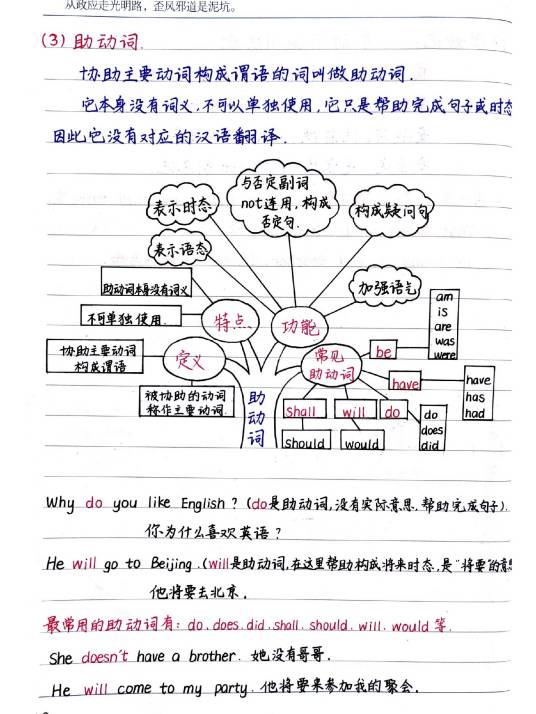 从政应走光明路，歪风邪道是泥坑。
(3) 助动词.
协助主要动词构成谓语的词叫做助动词.
它本身没有词义,不可以单独使用,它只是帮助完成句子或时态
因此它没有对应的汉语翻译.
与否定副词
not连用,构成
否定句.
表示时态
构成疑问句
表示语态
加强语气
助动词本身没有词义
不可单独使用.
特点
功能
am
is
are
was
were
协助主要动词
构成谓语
定义
常见
助动词
be
have
have
has
had
被协助的动词
称作主要动词.
助
动
词
shall
will
do
do
does
did
should
would
Why do you like English? (do是助动词,没有实际意思,帮助完成句子).
你为什么喜欢英语?
He will go to Beijing.(will是助动词,在这里帮助构成将来时态,是"将要"的意思
他将要去北京.
最常用的助动词有: do、does、did、shall、should、will、would 等.
She doesn't have a brother. 她没有哥哥.
He will come to my party. 他将要来参加我的聚会.